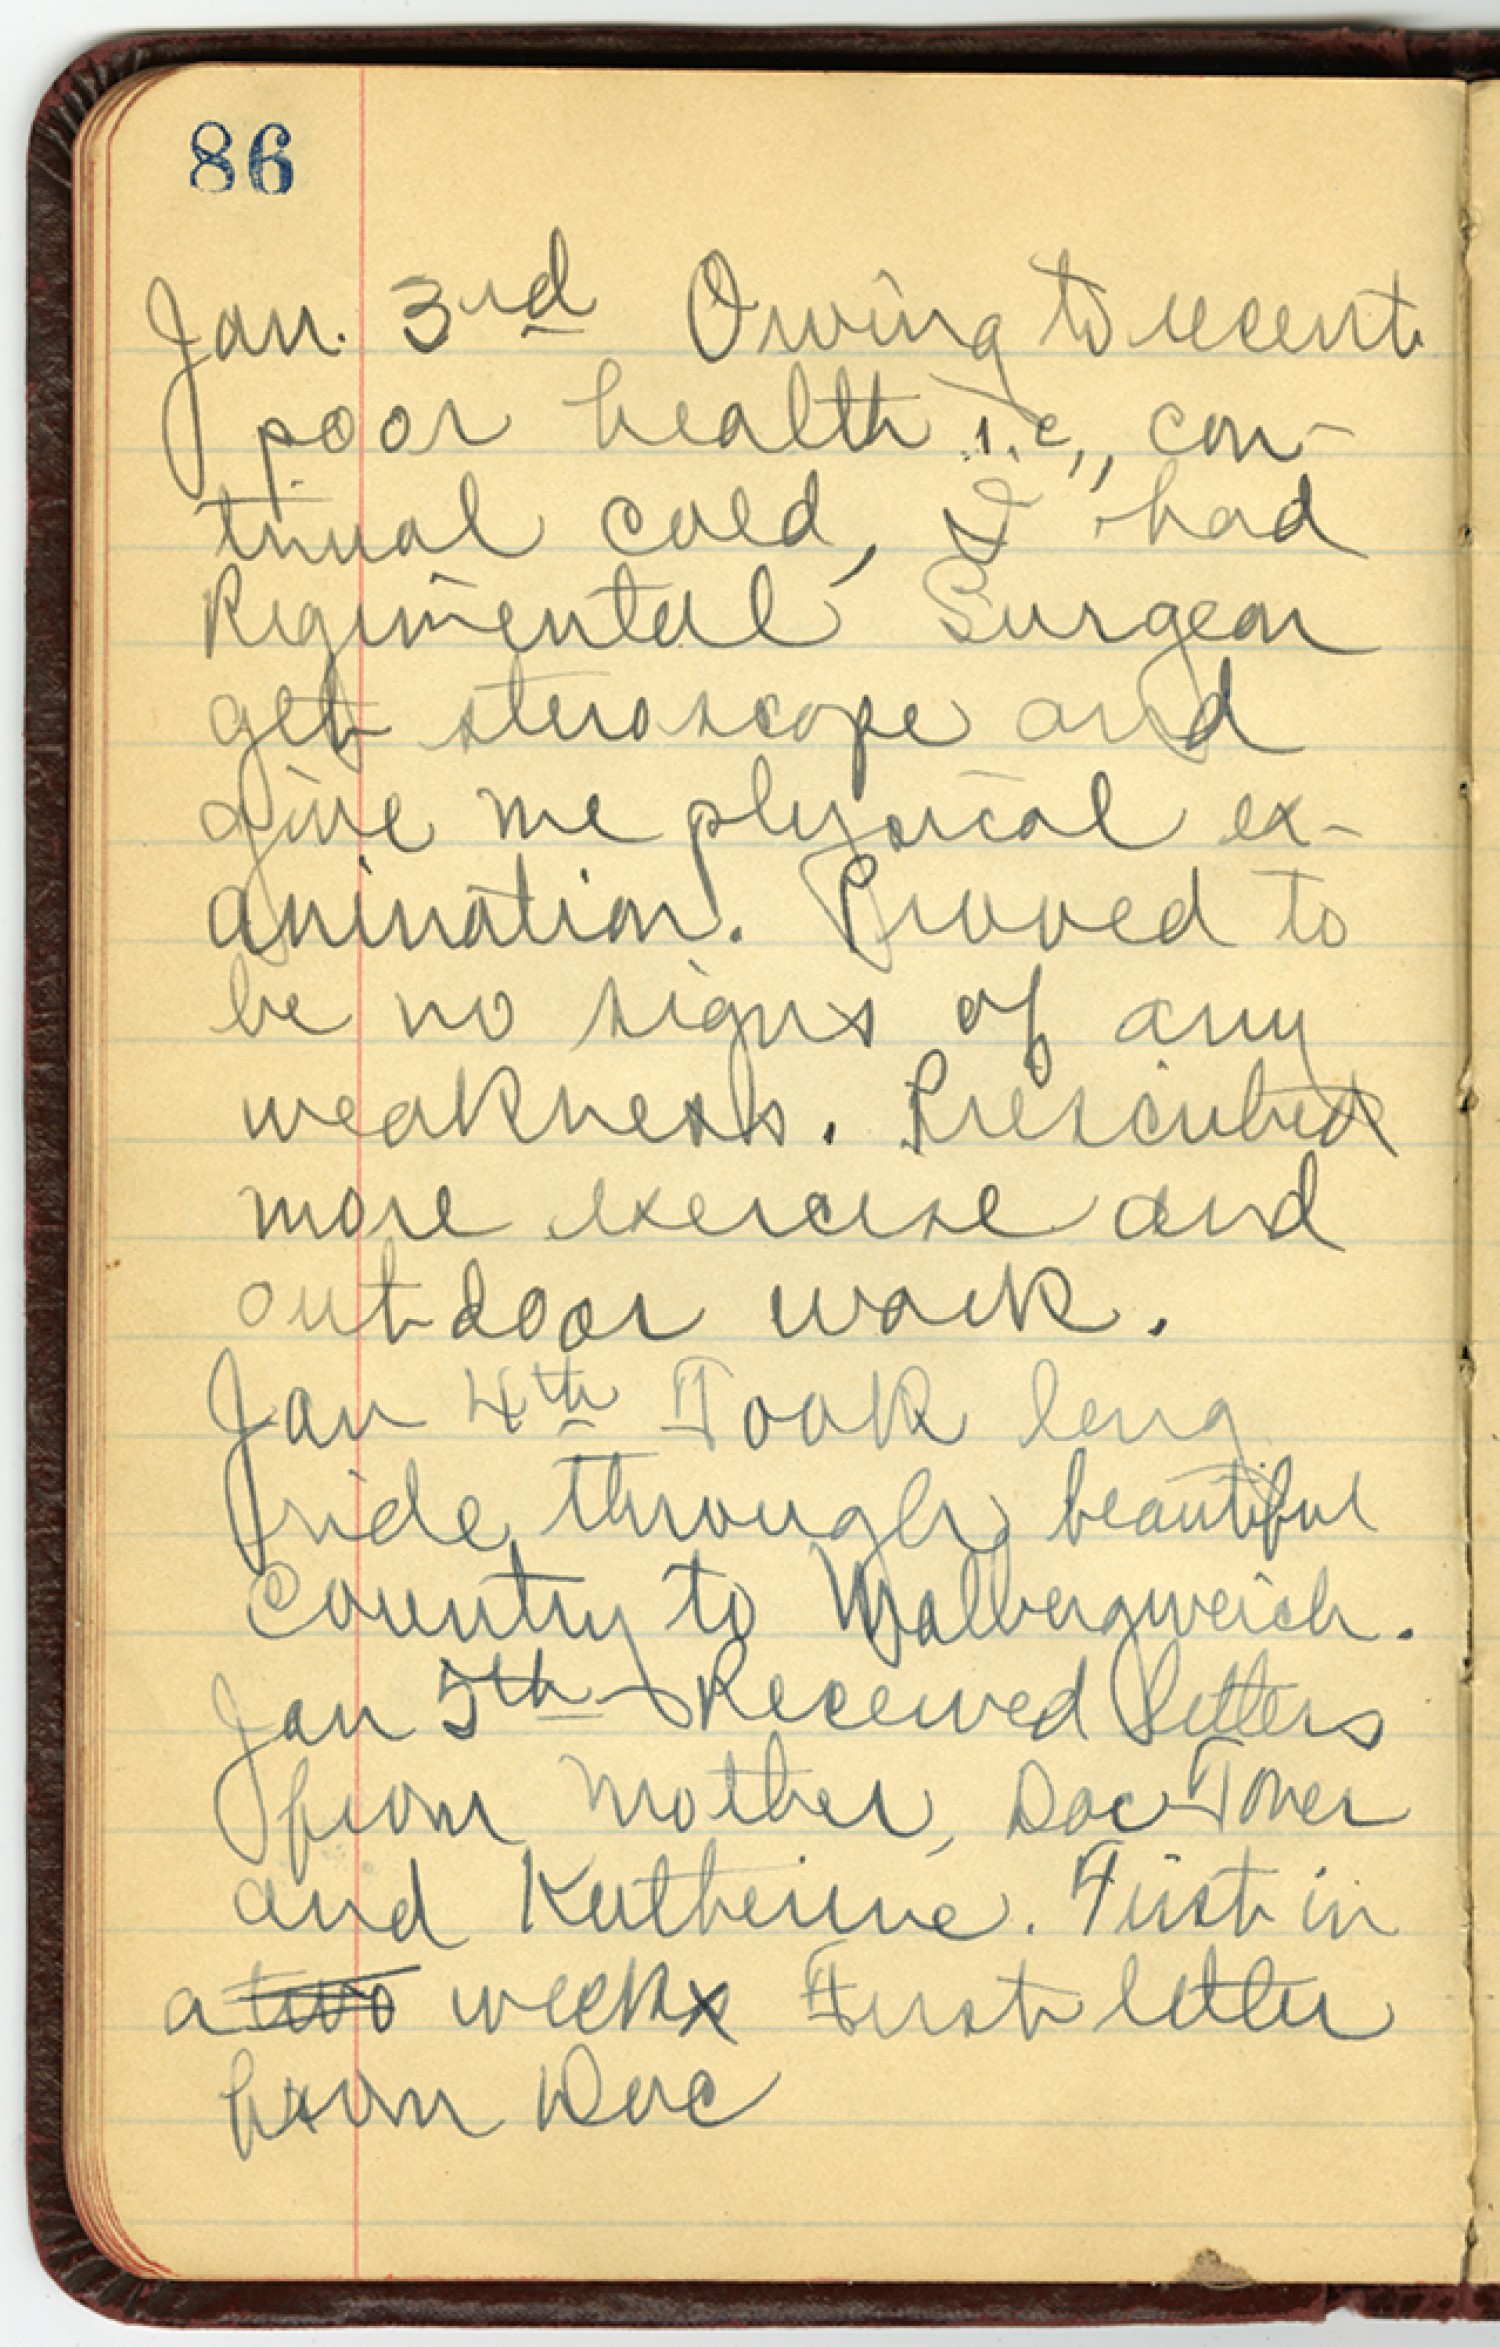 86
Jan. 3rd Owing to recent
poor health i.e., con-
tinual cold, I had
Regimental Surgeon
get steroscope and
give me physical ex-
amination. Proved to
be no signs of any
weakness. Prescribed
more exercise and
outdoor work.
Jan 4th Took long
ride through beautiful
Country to Malbergweich.
Jan 5th - Received letters
from Mother, Doc Toner
and Katherine. First in
a two weeks First letter
from Doc